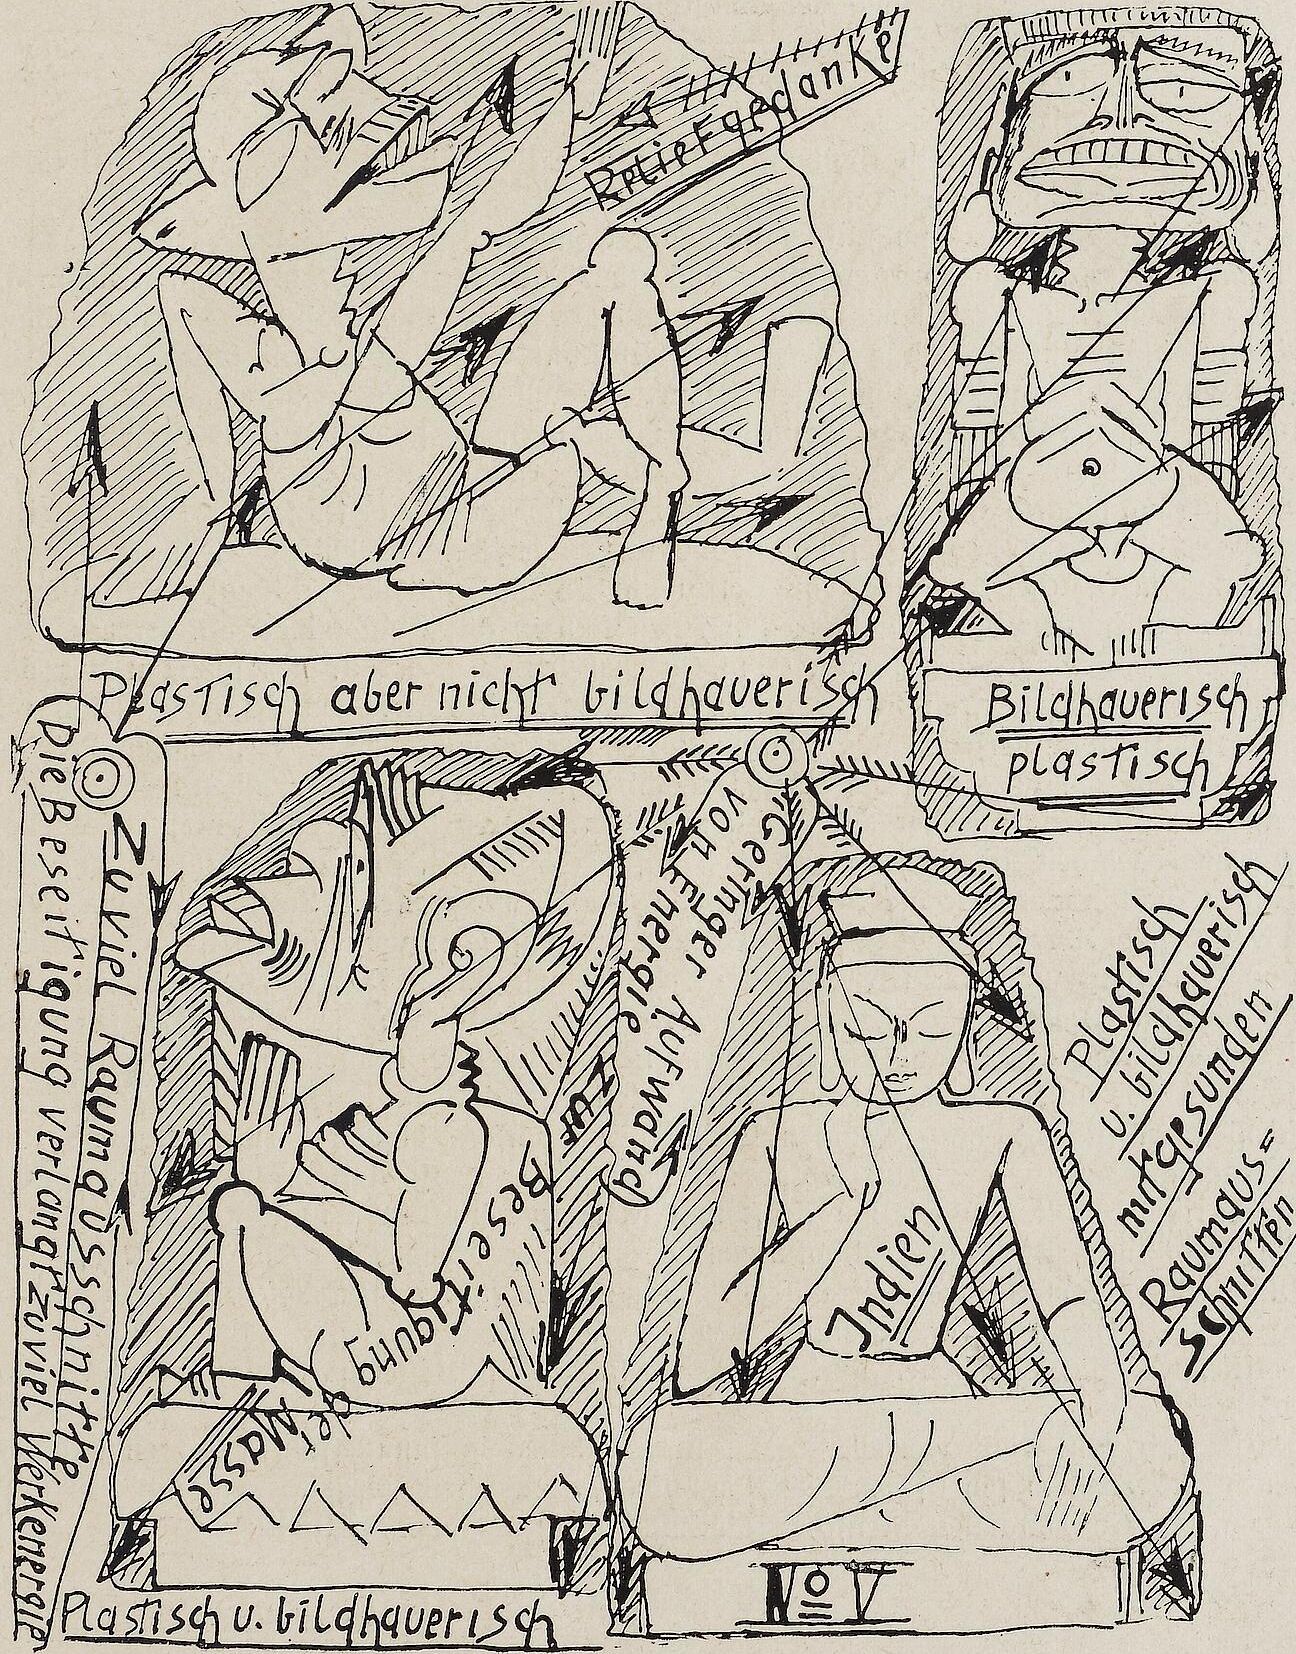 Reliefgedanke
Plastisch aber nicht bildhauerisch
Bildhauerisch
plastisch
Die Beseitigung verlangt zuviel Werkenergie
Zuviel Raumausschnitte
Geringer Aufwand
von Energie zur Beseitigung
der Masse
Indien
Plastisch
u. bildhauerisch
mit gesunden
Raumaus=
schnitten
Plastisch u. bildhauerisch
No V